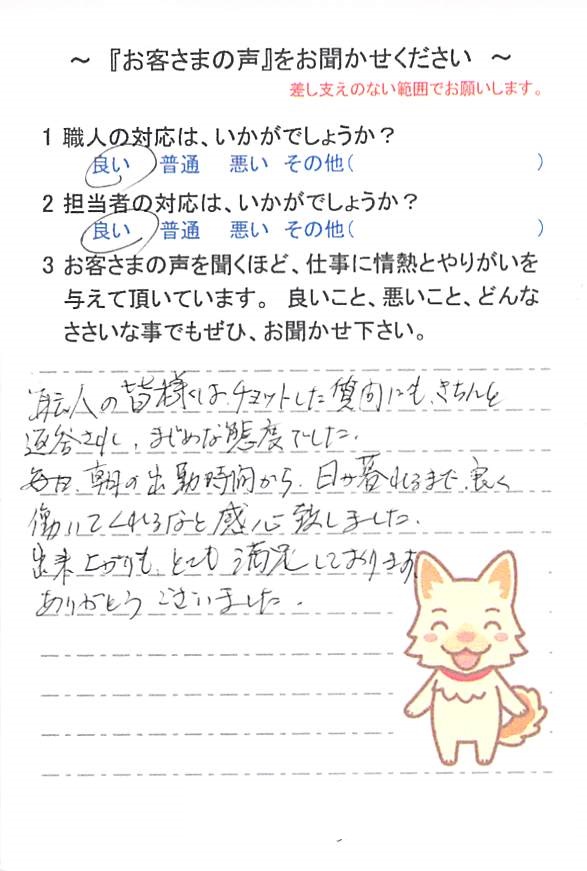 ～ 『お客さまの声』をお聞かせください ～
差し支えのない範囲でお願いします。
1 職人の対応は、いかがでしょうか？
良い 普通 悪い その他( )
2 担当者の対応は、いかがでしょうか？
良い 普通 悪い その他( )
3 お客さまの声を聞くほど、仕事に情熱とやりがいを
与えて頂いています。 良いこと、悪いこと、どんな
ささいな事でもぜひ、お聞かせ下さい。
職人の皆様はチョットした質問にも、きちんと
返答され、まじめな態度でした.
毎日、朝の出勤時間から、日が暮れるまで、良く
働いてくれるなと感心致しました.
出来上がりも、とても満足しております.
ありがとうございました.